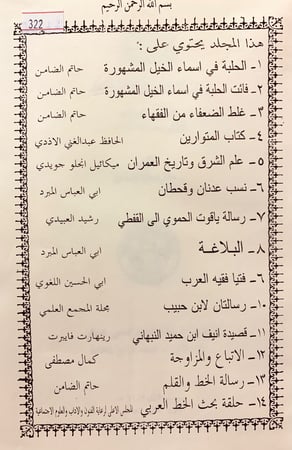 بسم الله الرحمن الرحيم
322
هذا المجلد يحتوي على :
١- الحلبة في اسماء الخيل المشهورة حاتم الضامن
٢- فائت الحلبة في اسماء الخيل المشهورة حاتم الضامن
٣- غلط الضعفاء من الفقهاء حاتم الضامن
٤- كتاب المتوارين الحافظ عبدالغني الاذدي
٥- علم الشرق وتاريخ العمران ميكائيل انجلو جويدي
٦- نسب عدنان وقحطان ابي العباس المبرد
٧- رسالة ياقوت الحموي الى القفطي رشيد العبيدي
٨- البلاغة ابي العباس المبرد
٩- فتيا فقيه العرب ابي الحسين اللغوي
١٠- رسالتان لابن حبيب مجلة المجمع العلمي
١١- قصيدة انيف ابن حميد النبهاني رينهارت فايبرت
١٢- الاتباع والمزاوجة كمال مصطفى
١٣- رسالة الخط والقلم حاتم الضامن
١٤- حلقة بحث الخط العربي المجلس الاعلى لرعاية الفنون والاداب والعلوم الاجتماعية